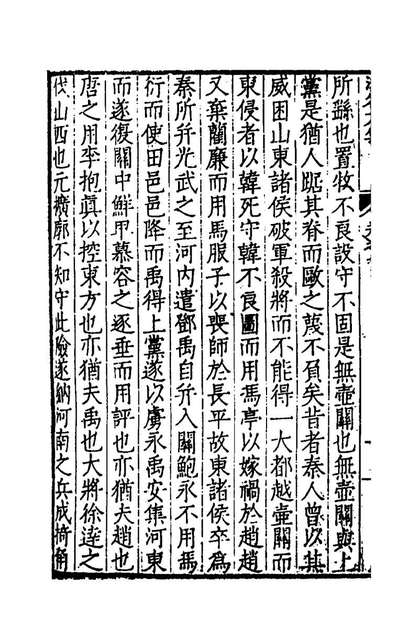 所繇也置牧不良設守不固是無壺關也無壺關與上
黨是猶人踞其脊而敺之蔑不負矣昔者秦人曾以其
威困山東諸侯破軍殺將而不能得一大都越壺關而
東侵者以韓死守韓不良圖而用馮亭以嫁禍於趙趙
又棄藺廉而用馬服子以喪師於長平故東諸侯卒為
秦所并光武之至河内遣鄧禹自并入關鮑永不用馮
衍而使田邑邑降而禹得上黨遂以虜永禹安集河東
而遂復關中鮮卑慕容之逐垂而用評也亦猶夫趙也
唐之用李抱眞以控東方也亦猶夫禹也大將徐逹之
伐山西也元擴廓不知守此險遂納河南之兵成掎角